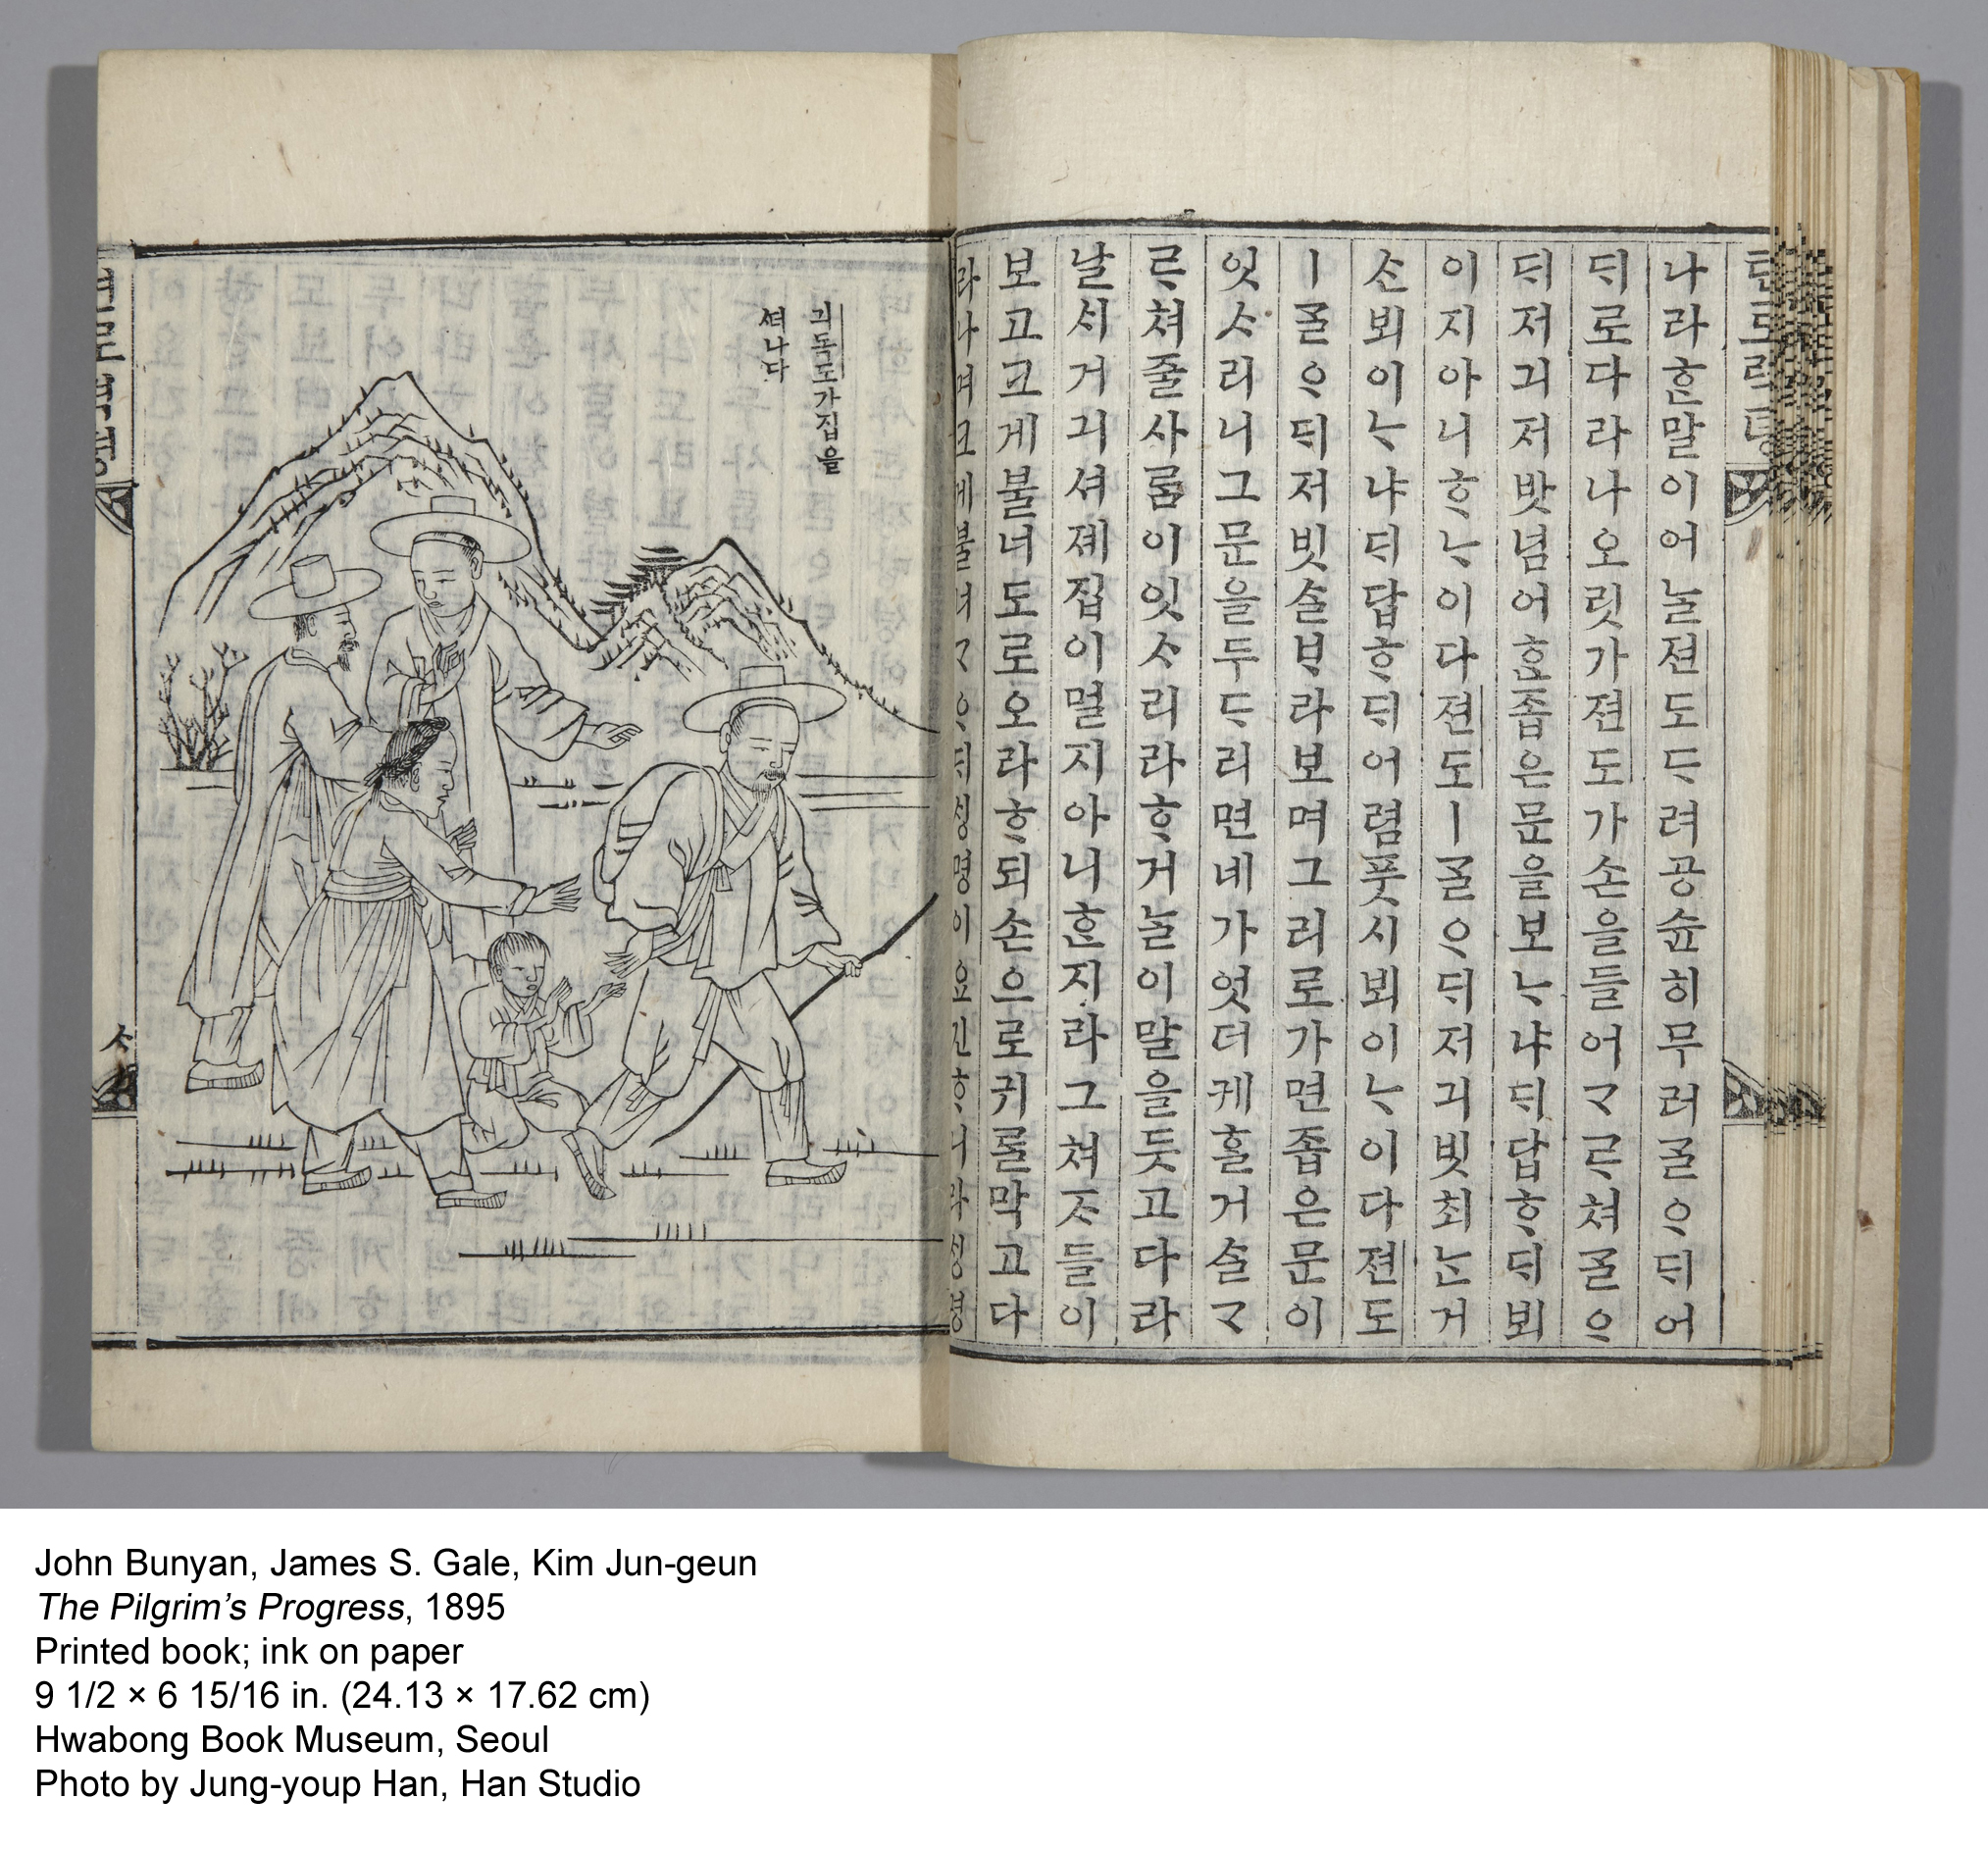 나라ᄒᆞᆫ말이어ᄂᆞᆯ젼도ᄃᆞ려공슌히무러ᄀᆞᆯᄋᆞᄃᆡ어
ᄃᆡ로다라나오릿가젼도가손을들어ᄀᆞᄅᆞ쳐ᄀᆞᆯᄋᆞ
ᄃᆡ저긔저밧넘어ᄒᆞᆫ좁은문을보ᄂᆞ냐ᄃᆡ답ᄒᆞᄃᆡ뵈
이지아니ᄒᆞᄂᆞ이다젼도ㅣᄀᆞᆯᄋᆞᄃᆡ저긔빗최ᄂᆞᆫ거
ᄉᆞᆫ뵈이ᄂᆞ냐ᄃᆡ답ᄒᆞᄃᆡ어렴풋시뵈이ᄂᆞ이다젼도
ㅣᄀᆞᆯᄋᆞᄃᆡ저빗ᄉᆞᆯᄇᆞ라보며그리로가면좁은문이
잇ᄉᆞ리니그문을두ᄃᆞ리면네가엇더케ᄒᆞᆯ거ᄉᆞᆯᄀᆞ
ᄅᆞ쳐줄사ᄅᆞᆷ이잇ᄉᆞ리라ᄒᆞ거ᄂᆞᆯ이말을듯고다라
날ᄉᆡ거긔셔졔집이멀지아니ᄒᆞᆫ지라그쳐ᄌᆞ들이
보고크게불너도로오라ᄒᆞ되손으로귀ᄅᆞᆯ막고다
라나며크게불너
긔독도가집을
ᄯᅥ나다
텬로력뎡
John Bunyan, James S. Gale, Kim Jun-geun
The Pilgrim’s Progress, 1895
Printed book; ink on paper
9 1/2 × 6 15/16 in. (24.13 × 17.62 cm)
Hwabong Book Museum, Seoul
Photo by Jung-youp Han, Han Studio